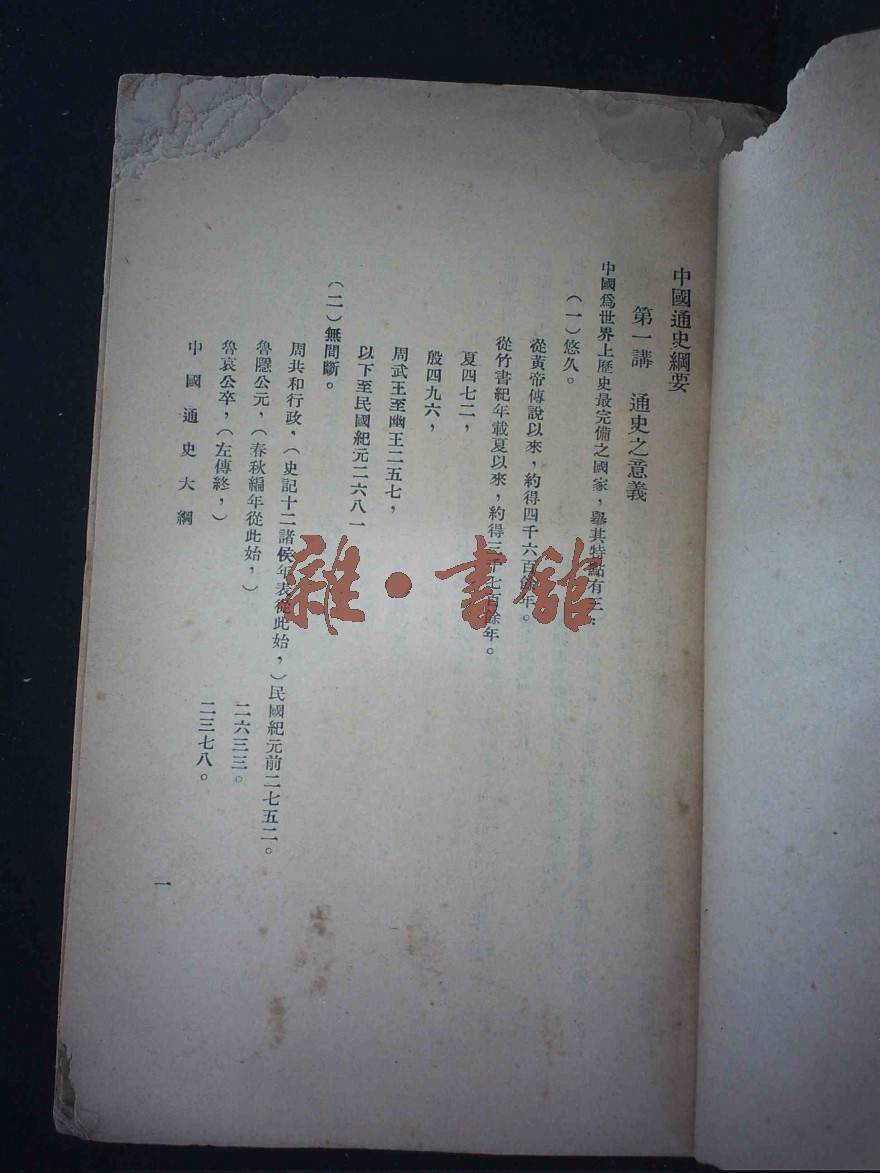 中國通史綱要
第一講　通史之意義
中國爲世界上歷史最完備之國家，舉其特點有三：
（一）悠久。
從黃帝傳說以來，約得四千六百餘年。
從竹書紀年載夏以來，約得三千七百餘年。
夏四七二，
殷四九六，
周武王至幽王二五七，
以下至民國紀元二六八一
（二）無間斷。
周共和行政，（史記十二諸侯年表從此始，）民國紀元前二七五二。
魯隱公元，（春秋編年從此始，）二六三三。
魯哀公卒，（左傳終，）二三七八。
中國通史大綱
一
雜·書館